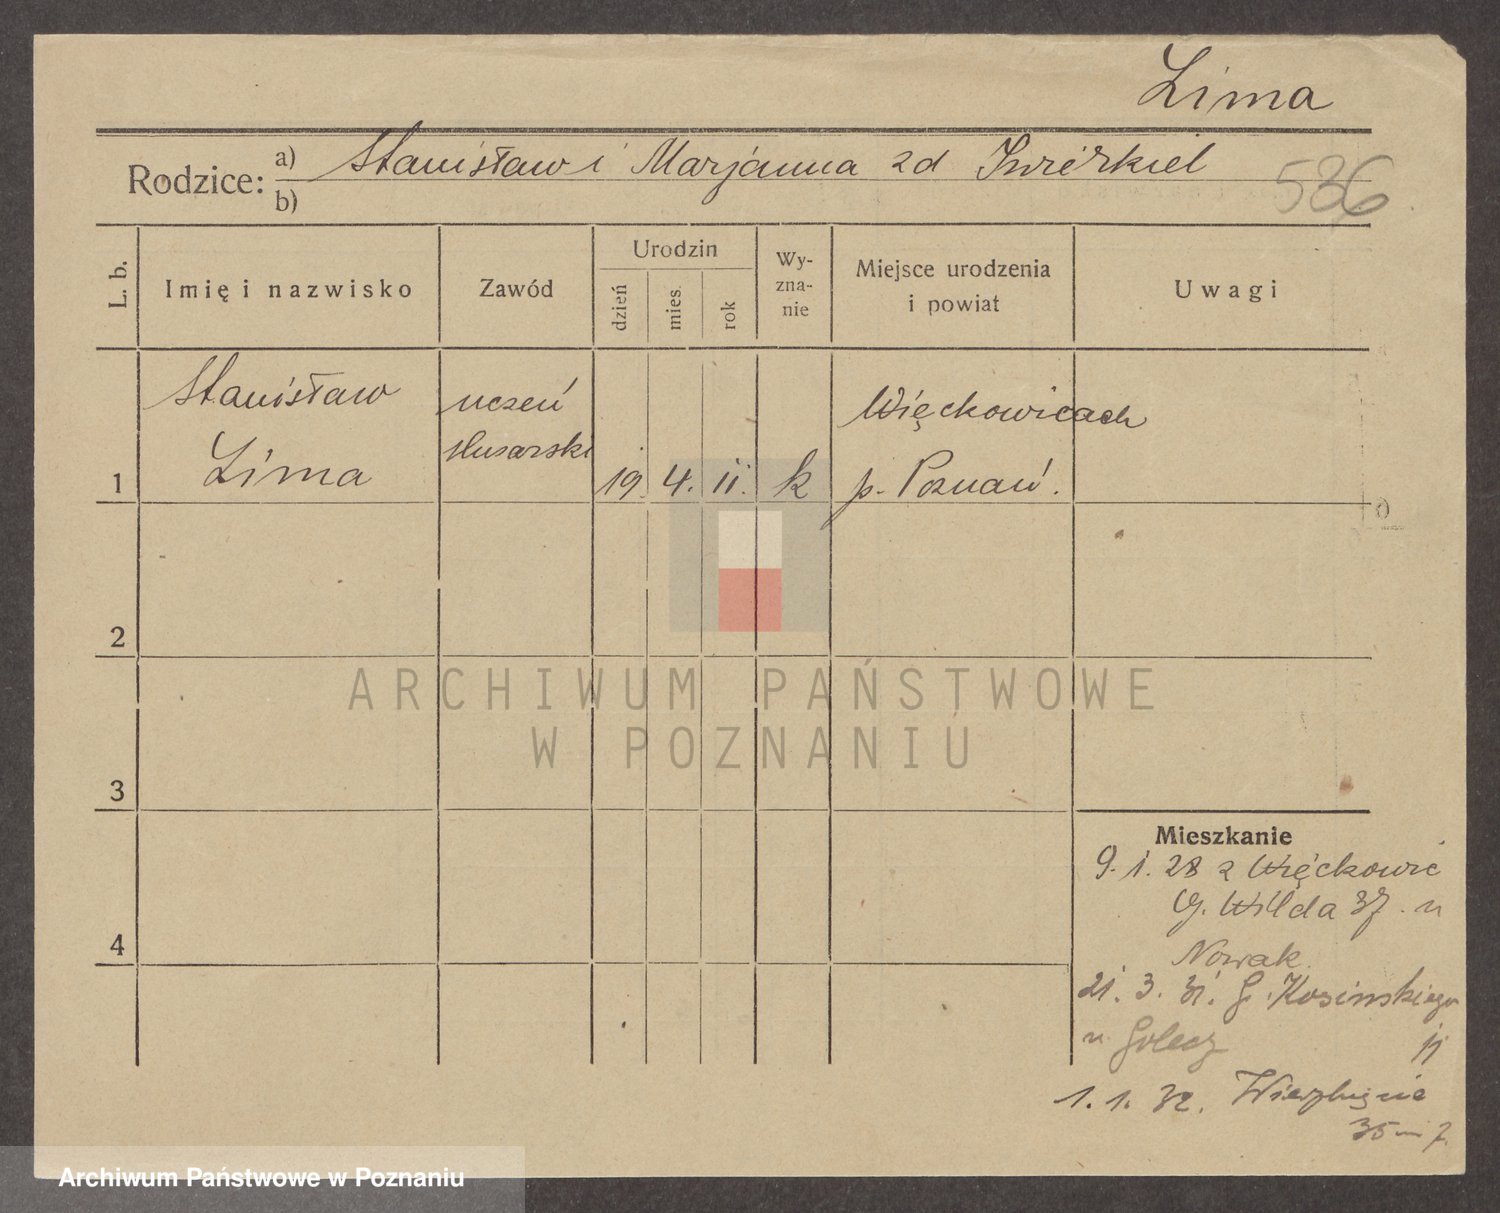 Lima
Rodzice: a) Stanisław i Marjanna zd
b)
536
L. b.
Imię i nazwisko
Zawód
Urodzin
dzień
mies.
rok
Wy-
zna-
nie
Miejsce urodzenia
i powiat
Uwagi
1
Stanisław
Lima
uczeń
ślusarski
19. 4. 11. k
Więckowicach
p. Poznań.
2
3
4
ARCHIWUM PAŃSTWOWE
W POZNANIU
Mieszkanie
9. 1. 28 z Więckowic
G. Wilda 37. u
Nowak
21. 3. 31. G. Kosińskiego
u Golecz
1. 1. 32.
35
Archiwum Państwowe w Poznaniu